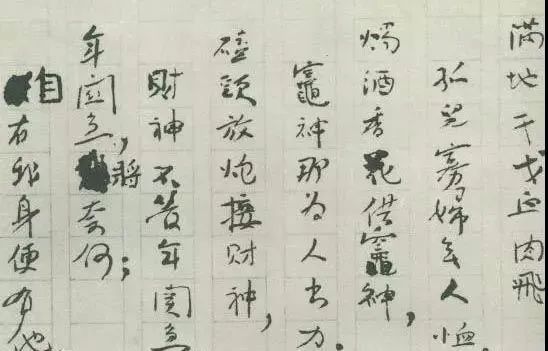 满地干戈血肉飛
孤兒寡婦無人恤.
燭酒香花供竈神,
竈神那為人出力.
磕頭放炮接財神,
財神不管年關急
年關急,將奈何;
自有我身便有他